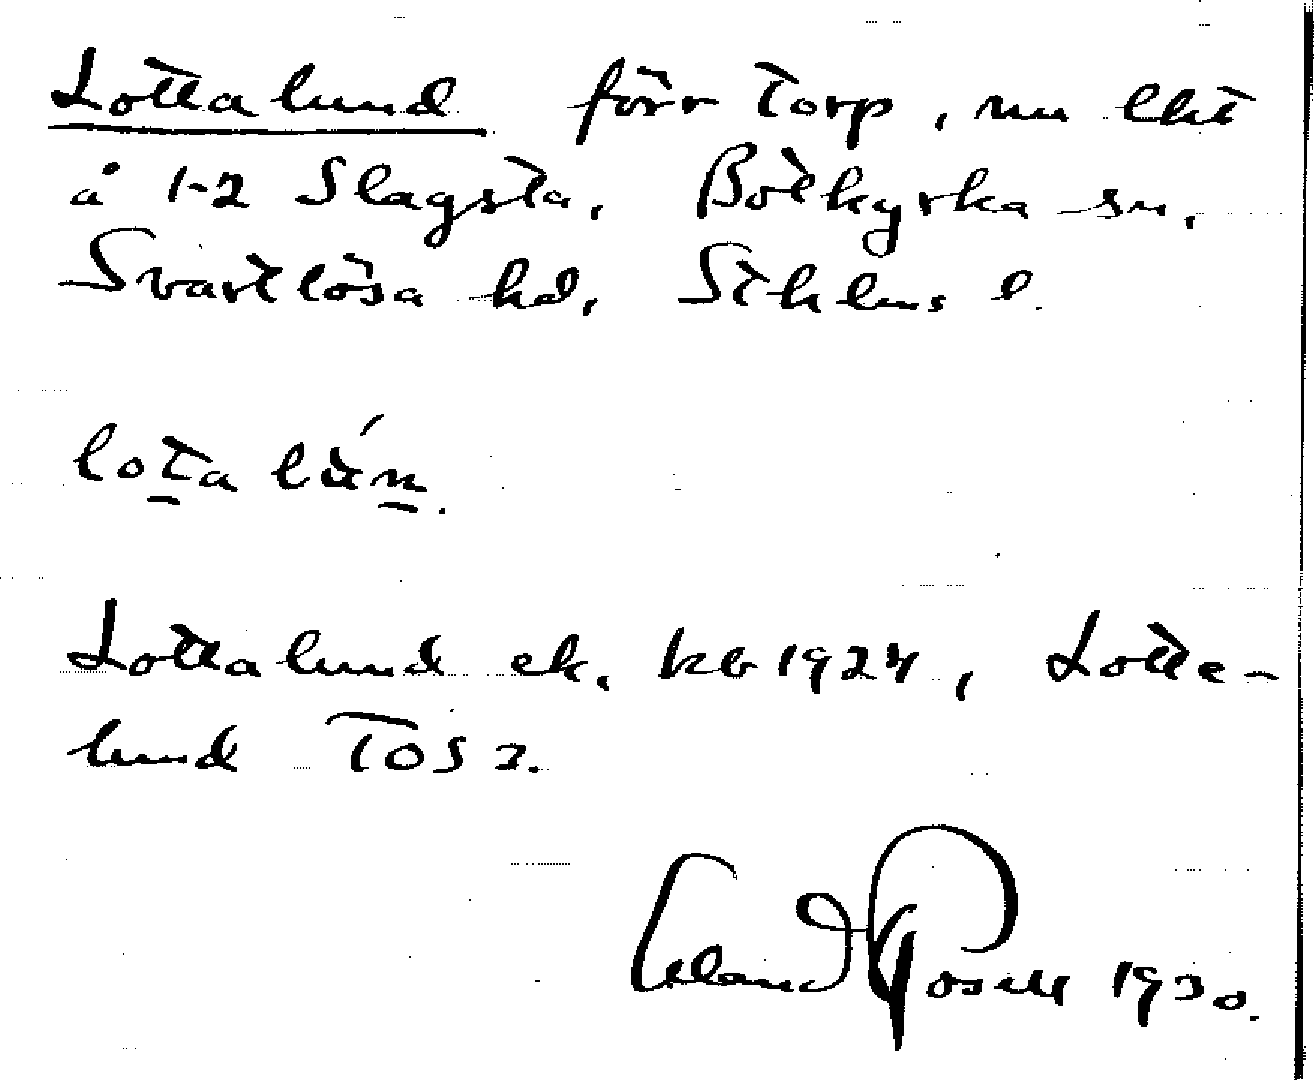 Lottalund förr torp, nu lht
å 1-2 Slagsta, Botkyrka sn,
Svartlösa hd, Sthlms l.
lota lún.
Lottalund ek. kb 1924, Lotte-
lund TOS 2.
Erland Rosell 1930.